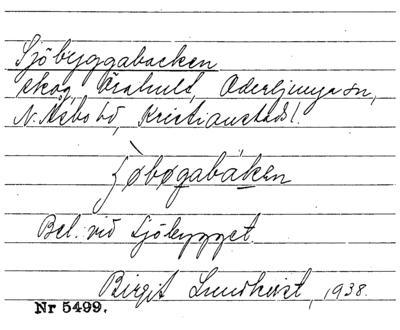 Sjöbyggabacken
skog, Örahult, Oderljunga sn,
N. Åsbo hd, Kristianstads l.
ʃø̀bøgabäken
Bel. vid Sjöbygget.
Birgit Lundkvist, 1938.
Nr 5499.